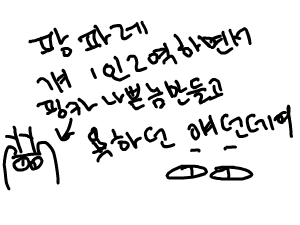 팡 파레
겨 1인2역하면서
핑카 나쁜놈만들고
욕하던 얘던데ㅋ